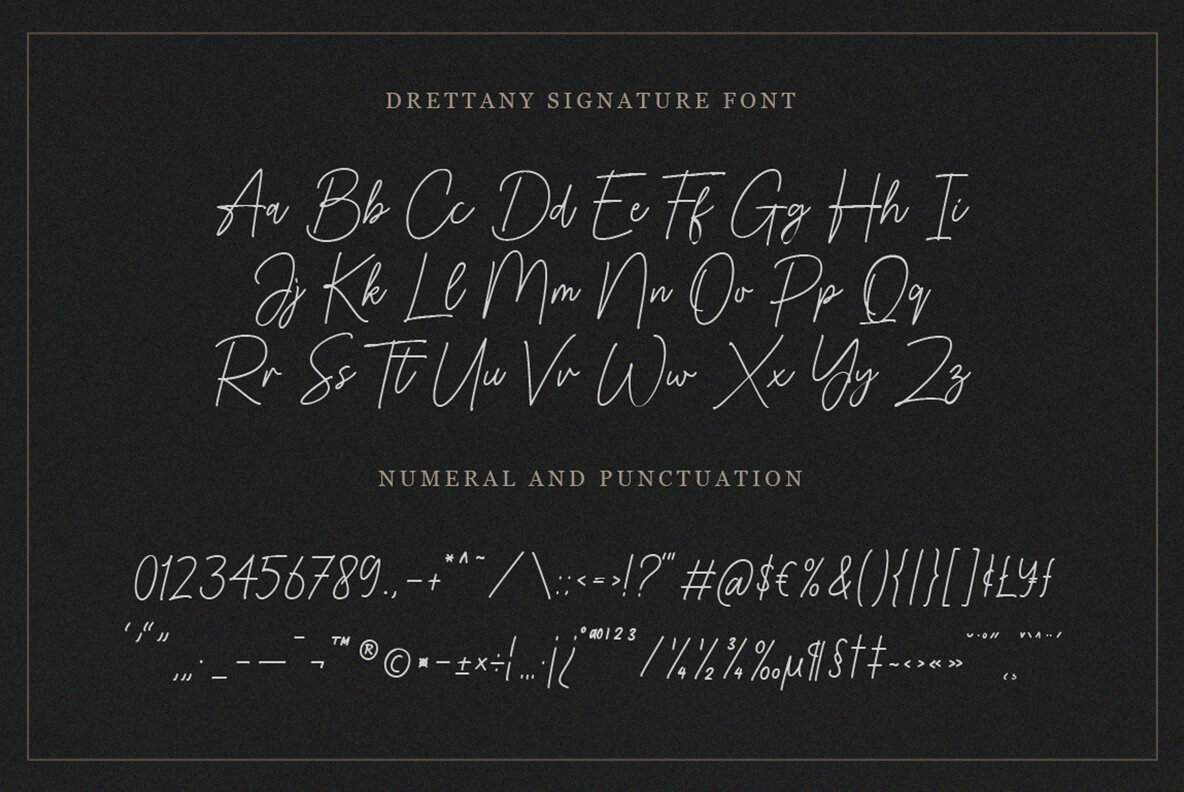 DRETTANY SIGNATURE FONT
Aa Bb Cc Dd Ee Ff Gg Hh Ii
Jj Kk Ll Mm Nn Oo Pp Qq
Rr Ss Tt Uu Vv Ww Xx Yy Zz
NUMERAL AND PUNCTUATION
0123456789.,-+*^~/\.:;<=>!?'"#@$€%&(){|}[]¢£¥ƒ
‘’“”‚„·_–—¯¬™®©¤-±×÷¦…·¡¿ºª0123⁄¼½¾‰µ¶§†‡~‹›«»